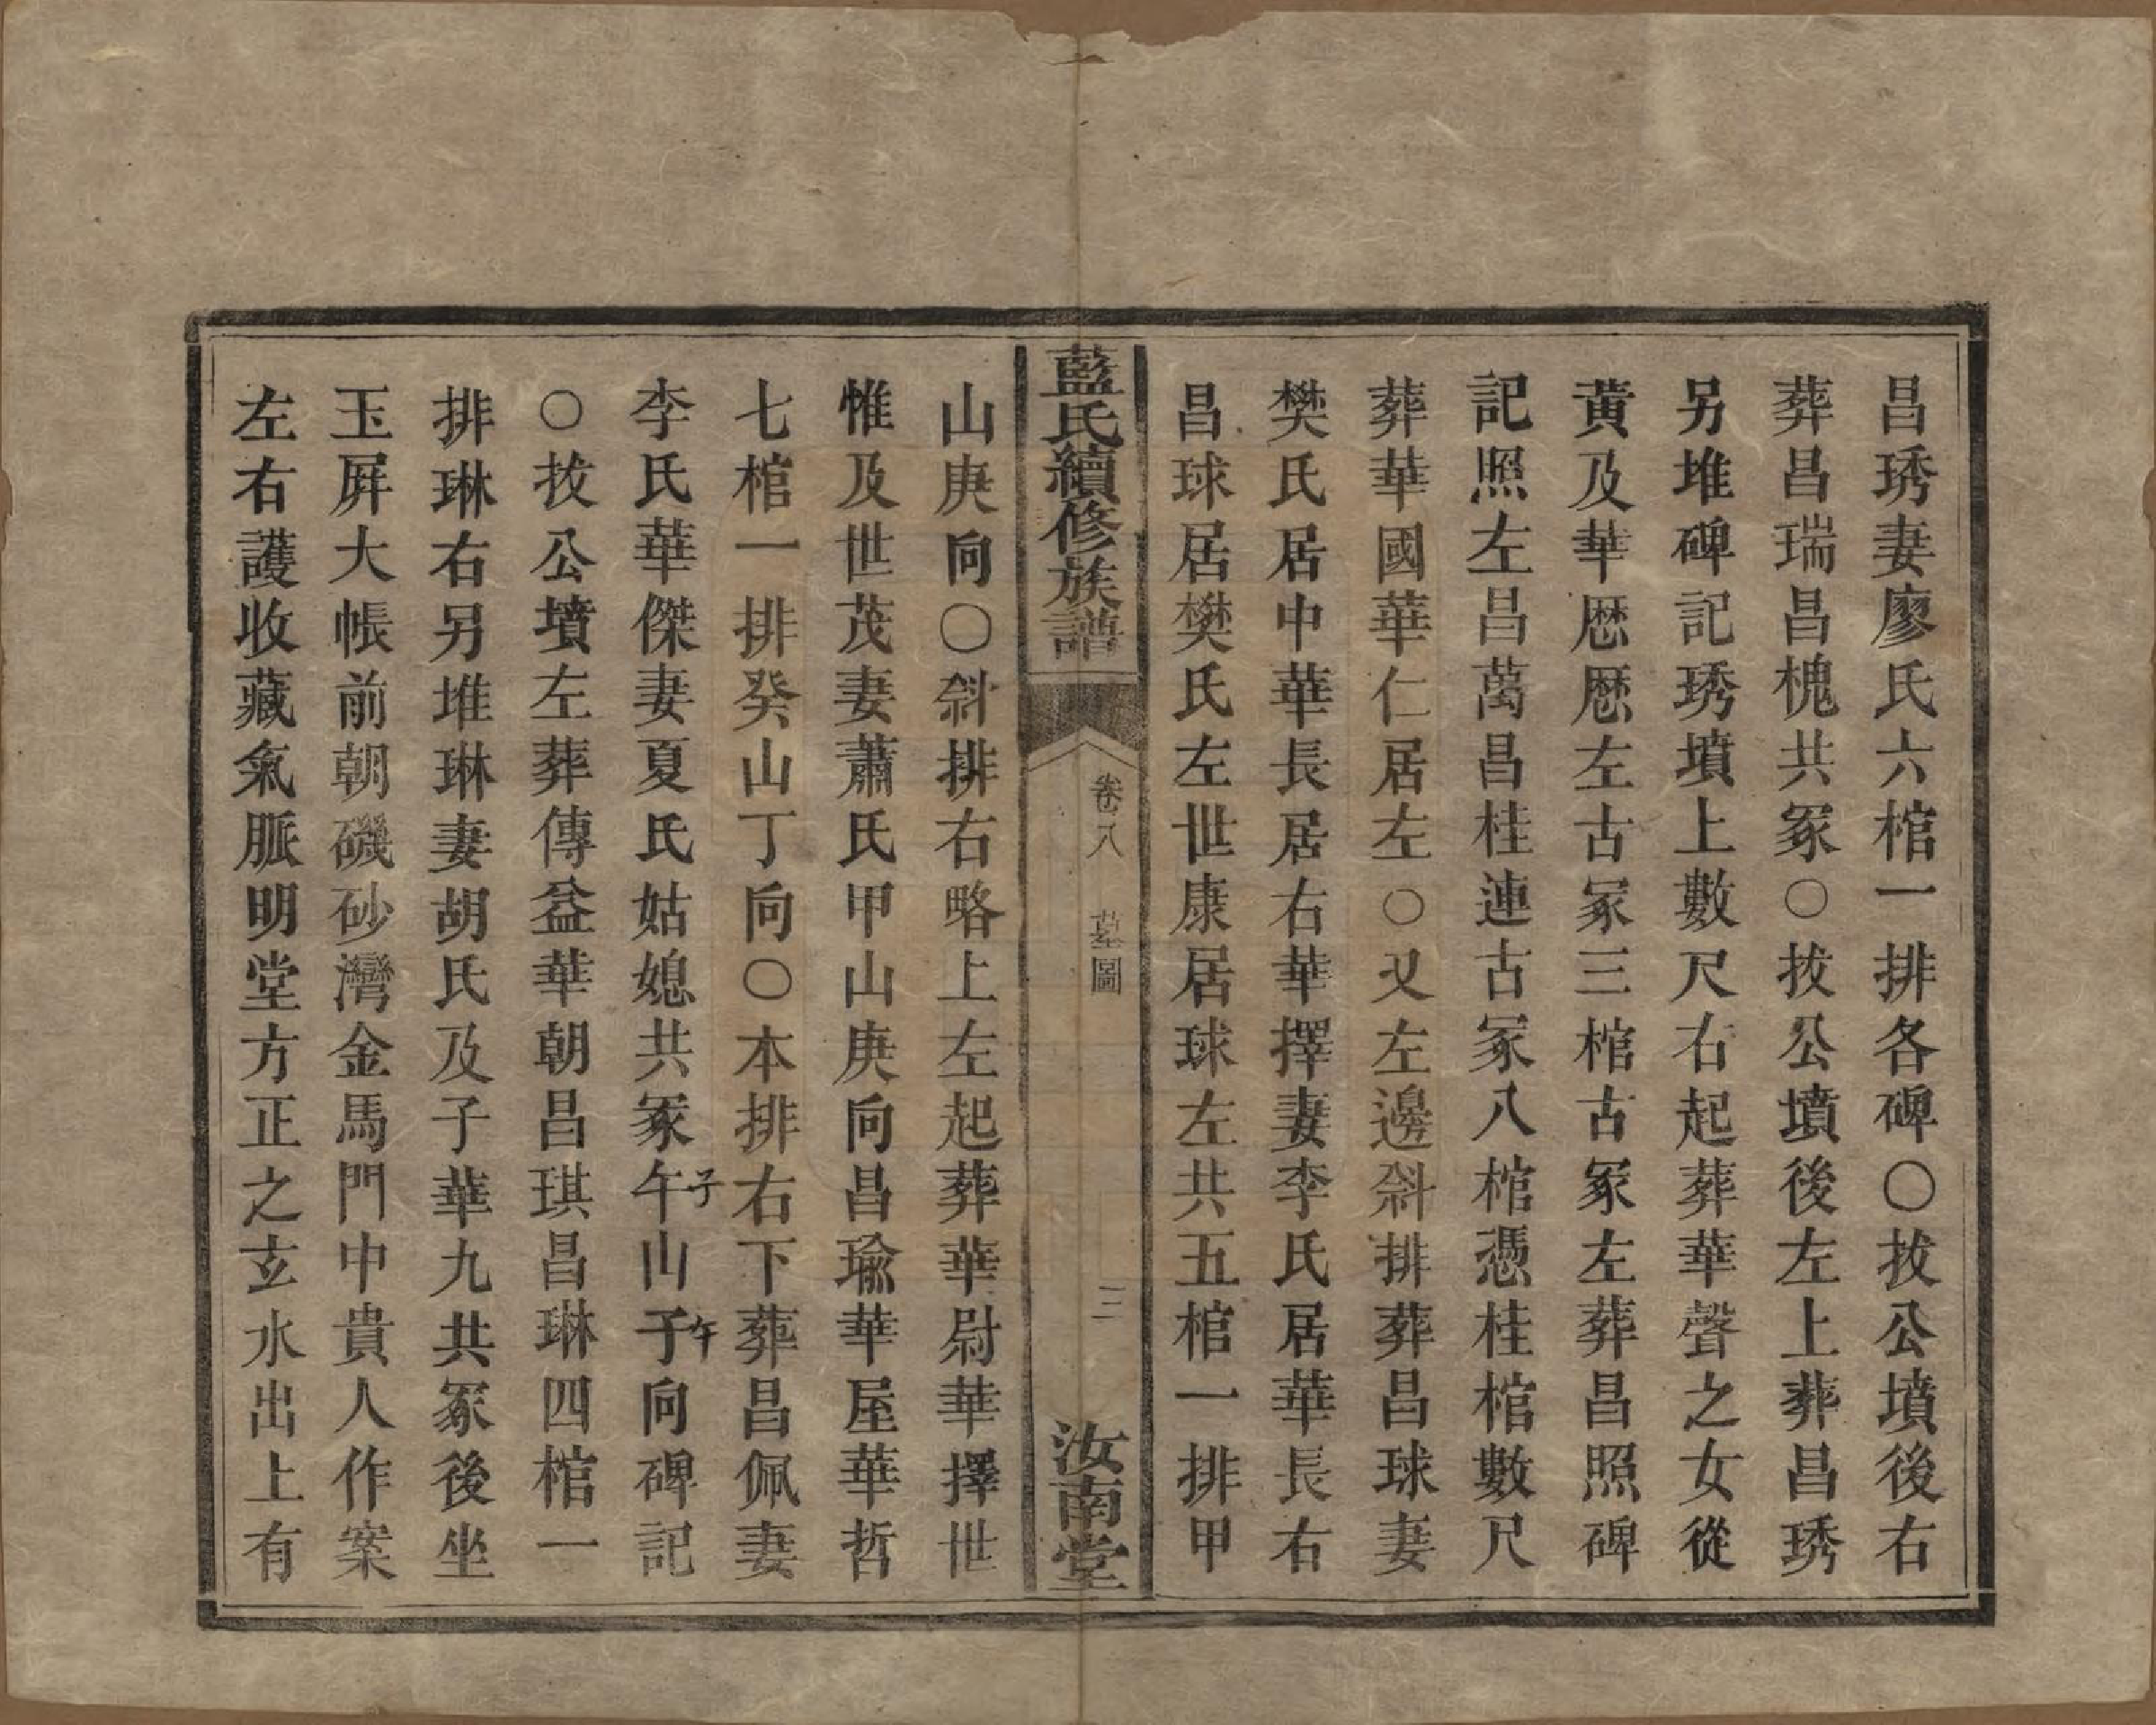 昌琇妻廖氏六棺一排各碑〇拔公墳後右
葬昌瑞昌槐共冢〇拔公墳後左上葬昌琇
另堆碑記琇墳上數尺右起葬華聲之女從
黃及華愿愿左古冢三棺古冢左葬昌照碑
記照左昌萬昌桂連古冢八棺憑桂棺數尺
葬華國華仁居左〇又左邊斜排葬昌球妻
樊氏居中華長居右華擇妻李氏居華長右
昌球居樊氏左世康居球左共五棺一排甲
藍氏續修族譜
卷八 墓圖
三
汝南堂
山庚向〇斜排右略上左起葬華尉華擇世
惟及世茂妻蕭氏甲山庚向昌瑜華屋華哲
七棺一排癸山丁向〇本排右下葬昌佩妻
李氏華傑妻夏氏姑媳共冢午子山子午向碑記
〇拔公墳左葬傳益華朝昌琪昌琳四棺一
排琳右另堆琳妻胡氏及子華九共冢後坐
玉屏大帳前朝磯砂灣金馬門中貴人作案
左右護收藏氣脈明堂方正之玄水出上有